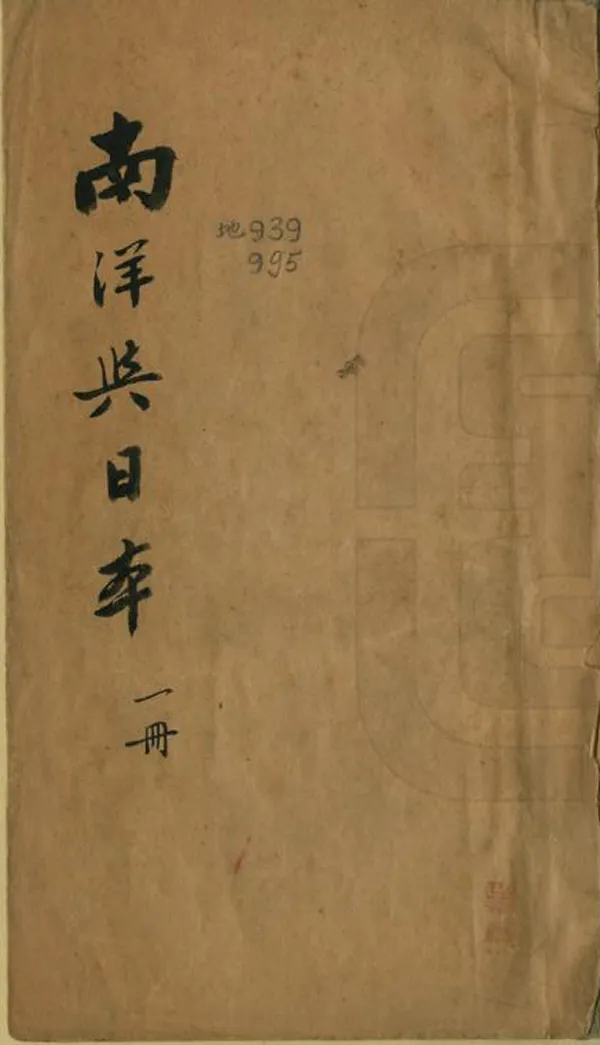 南洋與日本
一冊
地939
995